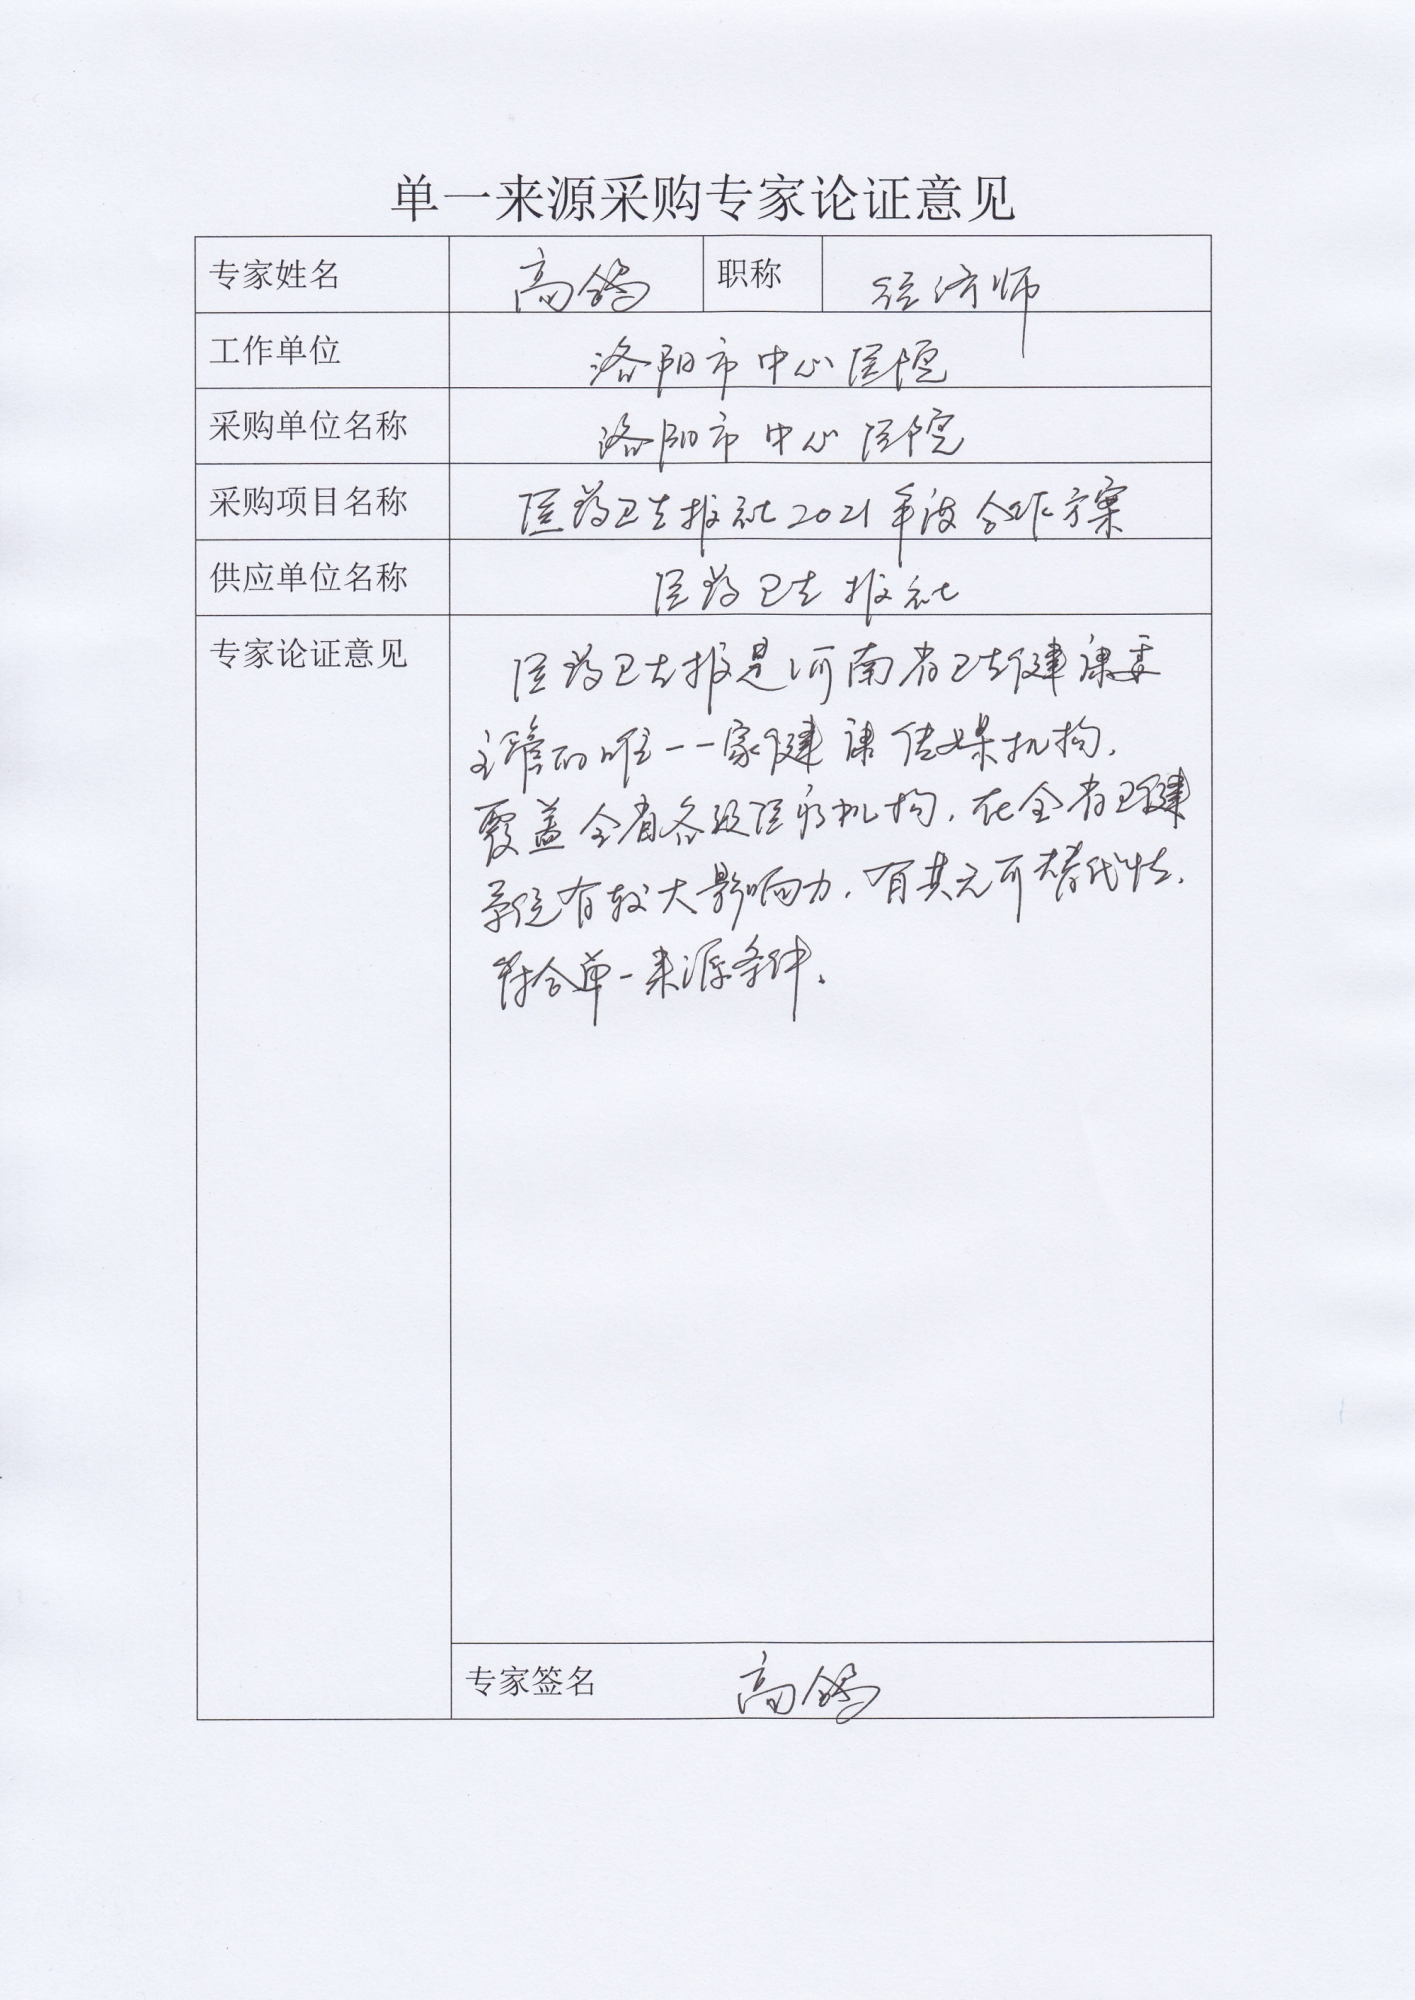 单一来源采购专家论证意见
专家姓名 高鸽 职称 经济师
工作单位 洛阳市中心医院
采购单位名称 洛阳市中心医院
采购项目名称 医药卫生报社2021年度合作方案
供应单位名称 医药卫生报社
专家论证意见 医药卫生报是河南省卫生健康委
主管的唯一一家健康传媒机构,
覆盖全省各级医疗机构,在全省卫健
系统有较大影响力,有其无可替代性,
符合单一来源条件。
专家签名 高鸽